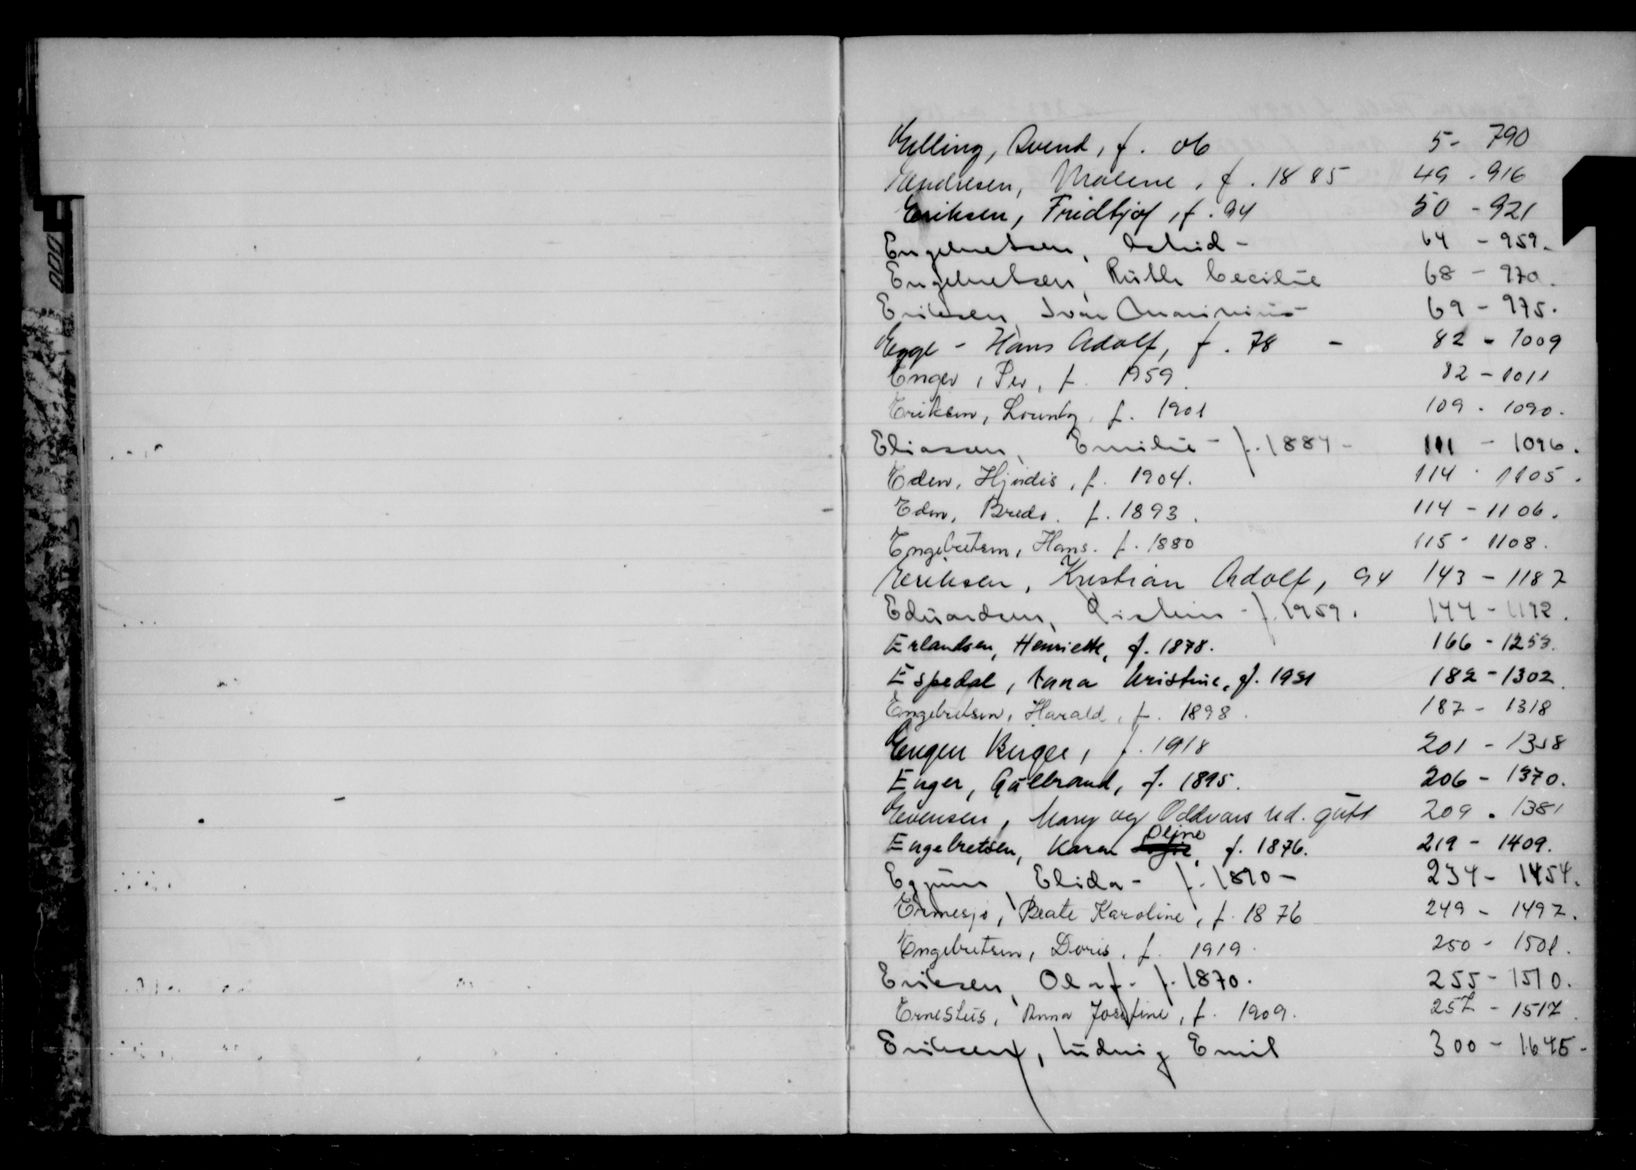 Elling, Svend, f. 06 5 - 790
Endresen, Malene, f. 1885 49 - 916
Eriksen, Fridtjof, f. 94 50 - 921
Engebretsen, Astrid - 64 - 959.
Engebretsen, Ruth Cecilie 68 - 970.
Eriksen, Ivar 69 - 975.
Egge - Hans Adolf, f. 78 - 82 - 1009
Enger, Per, f. 1959. 82 - 1011
Eriksen, f. 1901 109 - 1090.
Eliassen, Emilie - f. 1884 - 111 - 1096.
Eden, Hjørdis, f. 1904. 114 - 1105.
Eden, Bredo. f. 1893. 114 - 1106.
Engebretsen, Hans. f. 1880 115 - 1108.
Eriksen, Kristian Adolf, 94 143 - 1187
Edvardsen, - f. 1959. 144 - 1192.
Erlandsen, Henriette, f. 1878. 166 - 1253.
Espedal, Anna Kristine, f. 1931 182 - 1302.
Engebretsen, Harald, f. 1898. 187 - 1318
Engen Birger, f. 1918 201 - 1358
Enger, Gulbrand, f. 1895. 206 - 1370.
Evensen, Mary og Oddvars ud. gutt 209 - 1381
Engebretsen, Karen Oline, f. 1876. 219 - 1409.
Eggum Elida - f. 1890 - 234 - 1454.
Ermesjø, Beate Karoline, f. 1876 249 - 1497.
Engebretsen, Doris, f. 1919. 250 - 1501.
Eriksen, Olaf - f. 1870. 255 - 1510.
Ernestus, Anna Josefine, f. 1909. 257 - 1517.
Eriksen, Ludvig Emil 300 - 1645 -